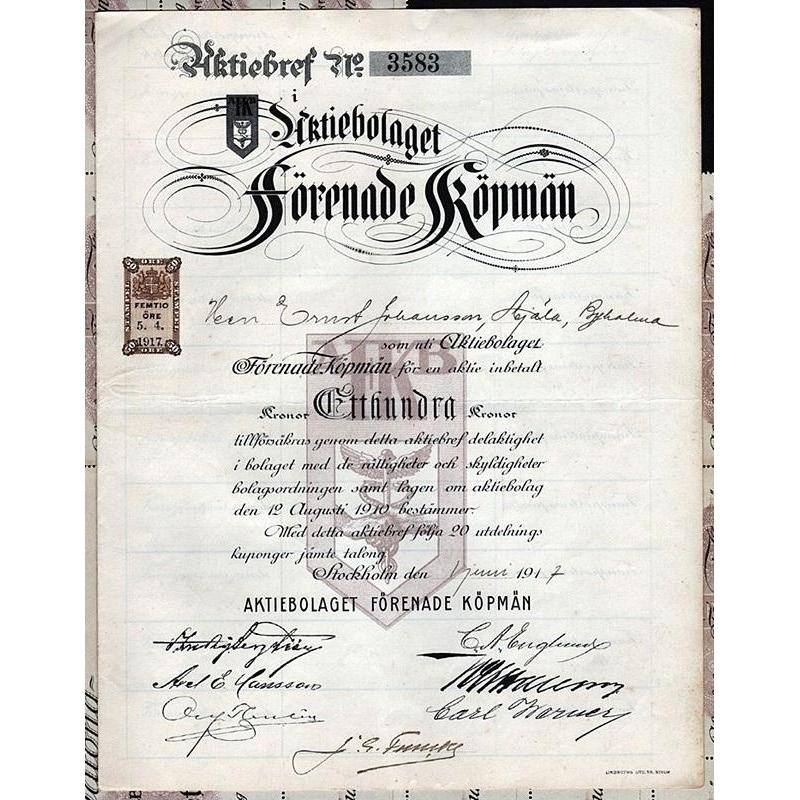 Aktiebref No 3583
i
Aktiebolaget
Förenade Köpmän
FEMTIO
ÖRE
5. 4.
1917.
Herr Ernst Johansson, Byholma
som uti Aktiebolaget
Förenade Köpmän för en aktie inbetalt
Kronor Etthundra Kronor
tillförsäkras genom detta aktiebref delaktighet
i bolaget med de rättigheter och skyldigheter
bolagsordningen samt lagen om aktiebolag
den 12 Augusti 1910 bestämmer.
Med detta aktiebref följa 20 utdelnings
kuponger jämte talong.
Stockholm den 1 juni 1917
AKTIEBOLAGET FÖRENADE KÖPMÄN
C. A. Englund
Axel E. Hansson
Carl Werner